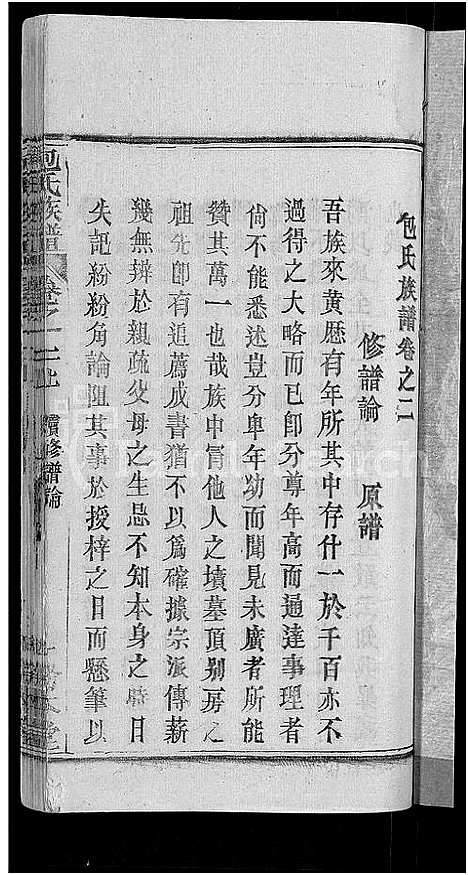 包氏族譜卷之二
修譜論 原譜
吾族來黃歷有年所其中存什一於千百亦不
過得之大略而已即分尊年高而通達事理者
尙不能悉述豈分卑年幼而聞見未廣者所能
贊其萬一也哉族中冐他人之墳墓頂别房之
祖先即有追薦成書猶不以爲確據宗派傳薪
幾無辨於親疏父母之生忌不知本身之時日
失記紛紛角論阻其事於授梓之日而懸筆以
包氏族譜 卷之二
續修譜論